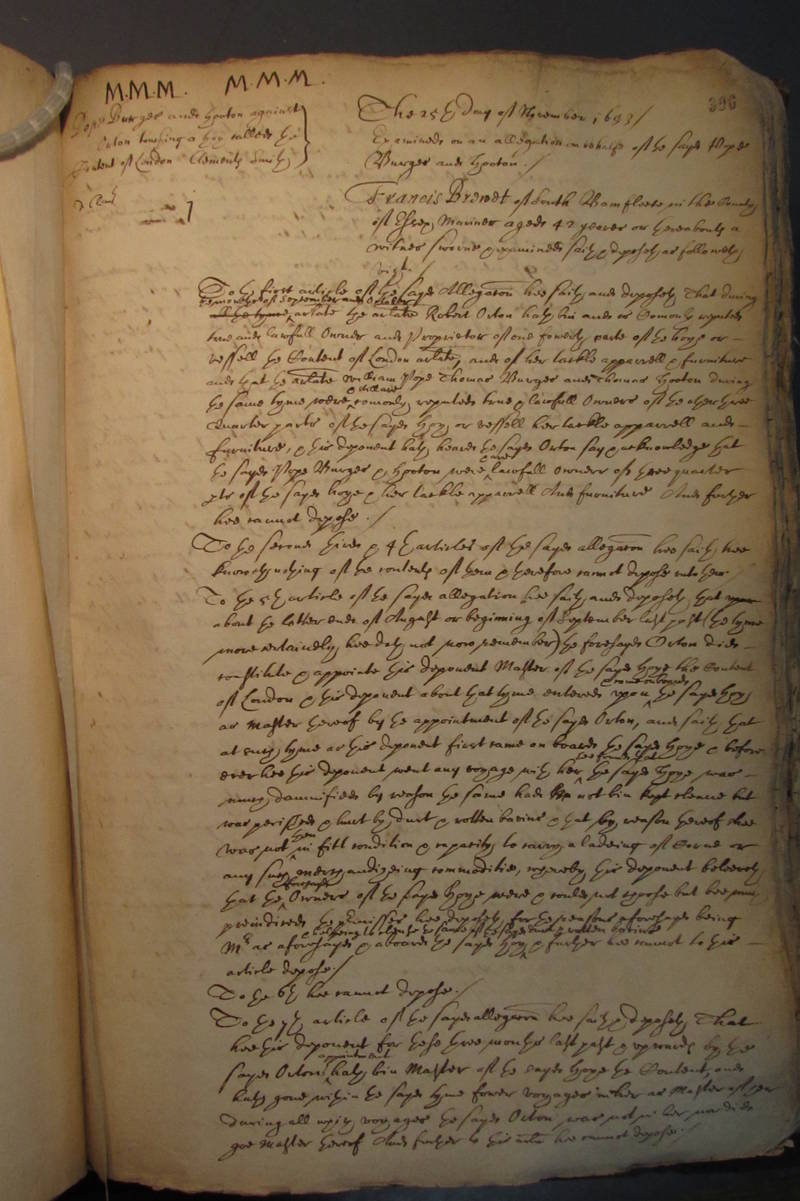 M.M.M. M.M.M.
396
Pope Burger and Hooton against
Orton touching a hoy called the
Content of London Clements Smith
The 25th day of November 1633/
Examined on an allegation on behalfe of the sayd Pope
Burger and Hooton ./
Francis Brewet of South Bamfleete in the County
of Essex Mariner aged 42 yeares or thereabouts a
witnes sworne & examined saith & deposeth as followeth
vizt.
To the first article of the sayd Allegation hee saith and deposeth That during
the monethes of September and October
arlate the arlate Robert Orton hath bin and is Comonly reputed
true and lawfull Owner and Proprietor of one fourth parte of the hoye or
vessell the Content of London arlate, and of her tackle apparrell & furniture
and that the arlate William Pope Thomas Burger and Thomas Hooton during
the same tyme were comonly reputed true & lawfull Owners of the other three
Quarter parts of the sayd Hoy or vessell her tackle apparrell and
furniture, & this deponent hath heard the sayd Orton say & acknowledge that
the sayd Pope Burger & Hooton were lawfull Owners of three quarter
pts of the sayd hoye & her tackle apparrell And furniture And further
hee cannot depose ./
To the second third & 4th articles of the sayd allegation hee saith hee
knoweth nothing of the contents of them & therefore cannot depose
To the 5th article of the sayd allegation hee saith and deposeth that
about the latter end of August or beginning of September last past (the tyme
more certainely hee doth not now remember) the foresayd Orton did
constitute & appointe this deponent Master of the sayd hoye the Content
of London & this deponent about that tyme entered upon the sayd hoy
as Master thereof by the appointment of the sayd Orton, and saith that
at such tyme as this deponent first came on board the sayd hoye & before
ever hee this deponent went any voyage with her hee found that the sayd hoye was
much damnified by reason the same had not bin kept cleane but
was perished & hurt by durt & rotten & that by reason thereof shee
was not then in fitt condition & capacity to carry a ladeing of Corne or
any such merchandizeing commodities, whereby this deponent beleeveth
that the foresayd Owners of the sayd hoye were & could not choose but bee much
preiudiced the premisses hee deposeth for the reasons aforesayd being
Mr as aforesayd & aboard the sayd hoy & further hee cannot to this
article depose/
To the 6th hee cannot depose ./
To the 7th article of the sayd allegation hee saith & deposeth That
hee this deponent for these three moneths last past & upwards by the
sayd Ortons appointment hath bin Master of the sayd hoye the Content, and
hath gone within the sayd tyme fower voyages in her as Master of her
during all which voyages the sayd Orton was not in her nor did
goe Master thereof And further to this arlt hee cannot depose ./